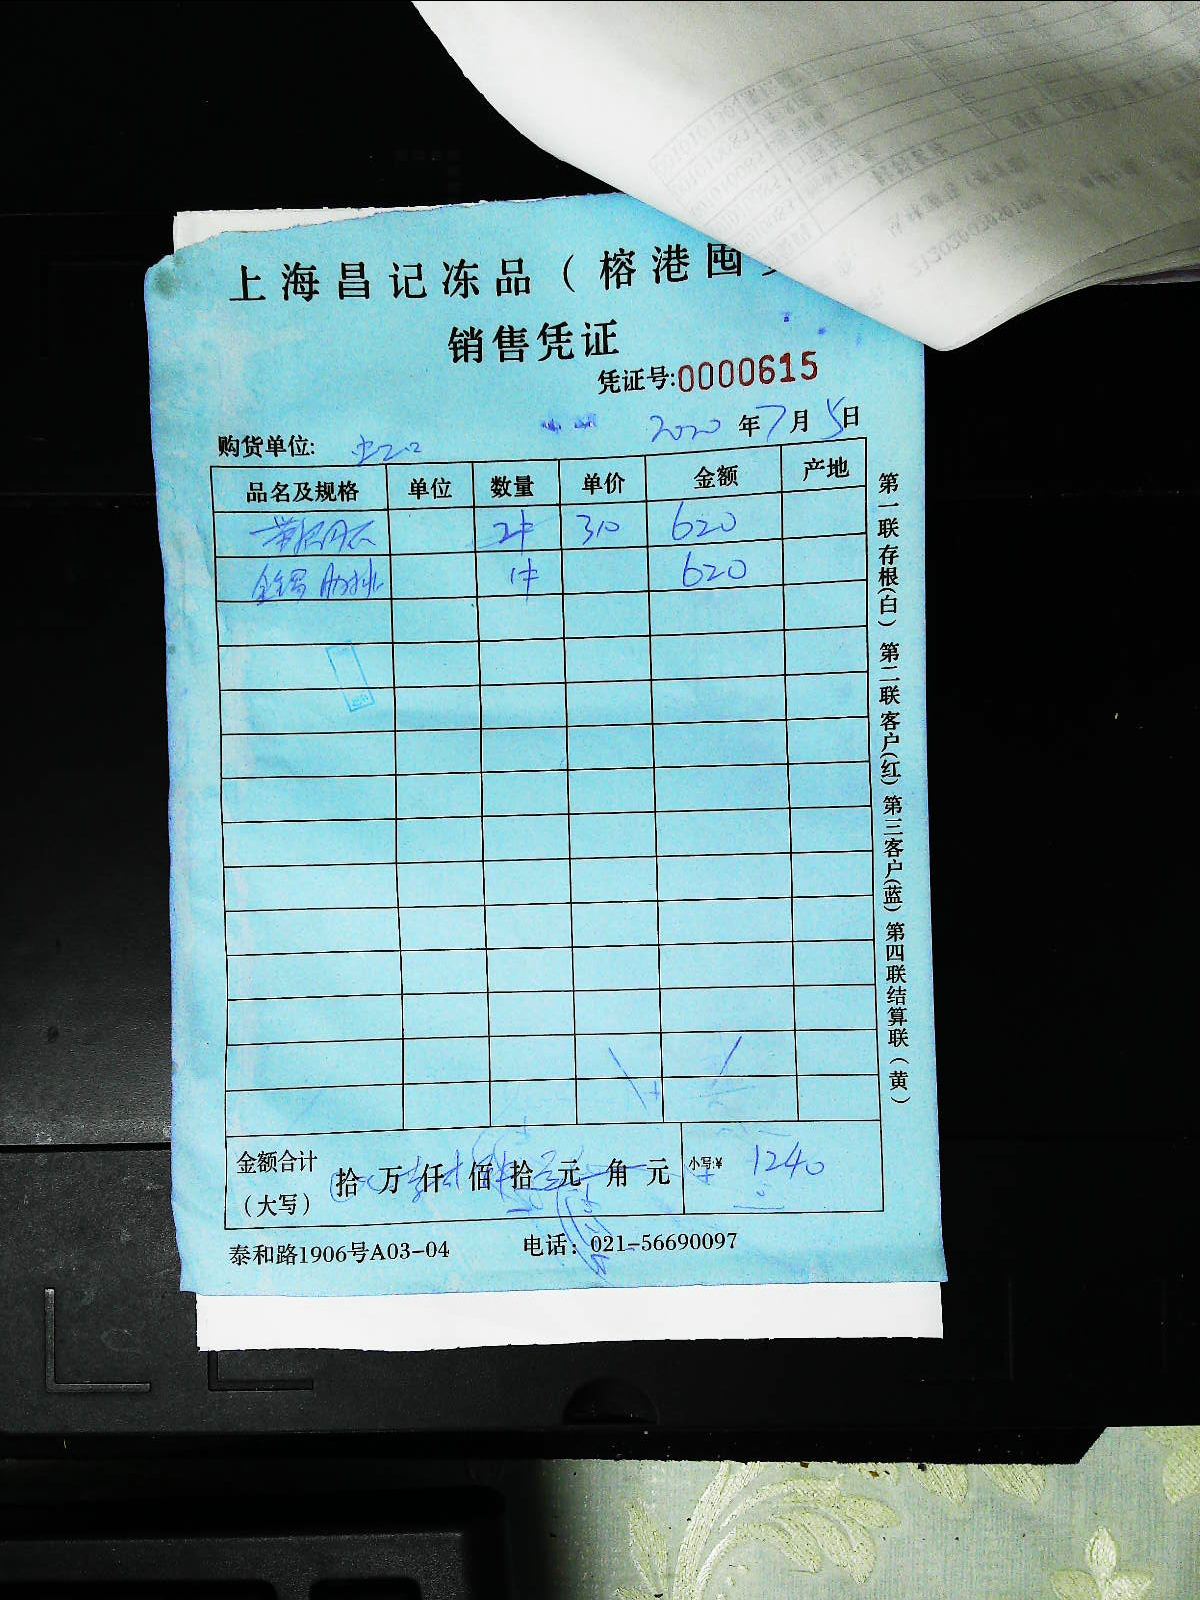 上海昌记冻品（榕港囤
销售凭证
凭证号:0000615
2020年7月5日
购货单位:
品名及规格 单位 数量 单价 金额 产地
2件 310 620
肋排 1件 620
金额合计（大写） 拾 万 仟 佰 拾 元 角 元 小写:¥ 1240
泰和路1906号A03-04 电话：021-56690097
第一联存根(白) 第二联客户(红) 第三客户(蓝) 第四联结算联(黄)